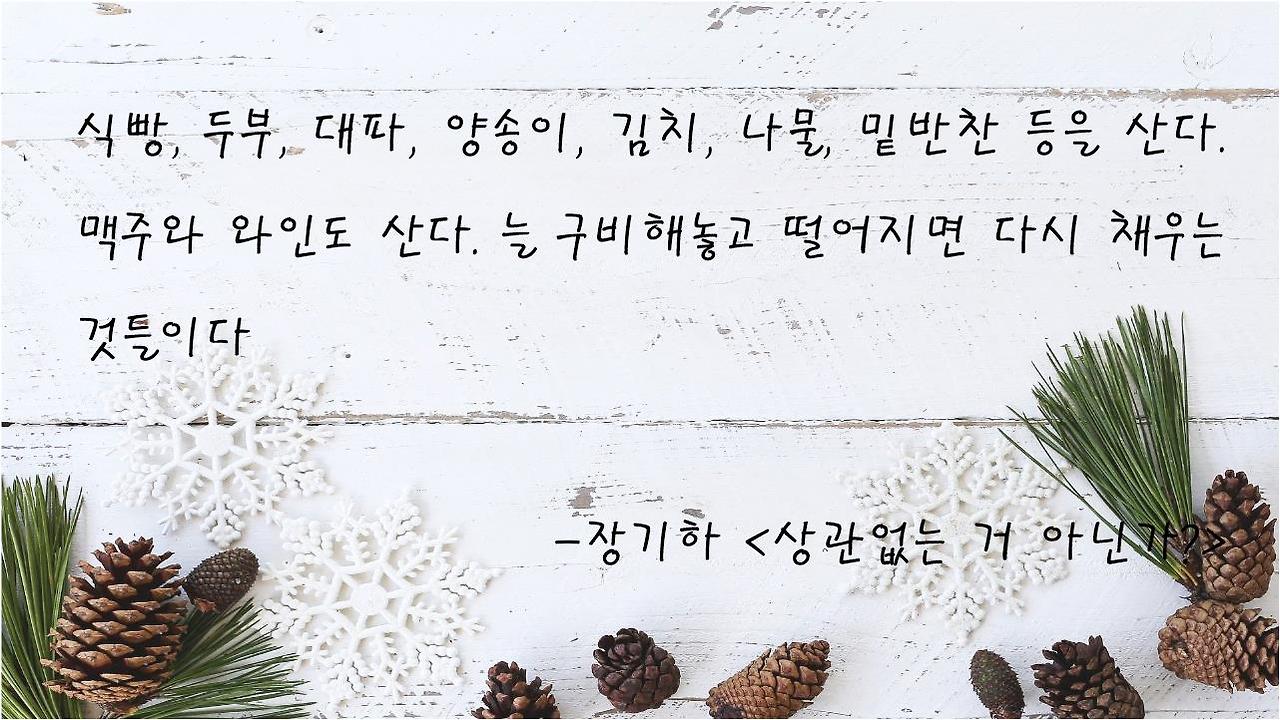 식빵, 두부, 대파, 양송이, 김치, 나물, 밑반찬 등을 산다.
맥주와 와인도 산다. 늘 구비해놓고 떨어지면 다시 채우는
것들이다
-장기하 <상관없는 거 아닌가?>